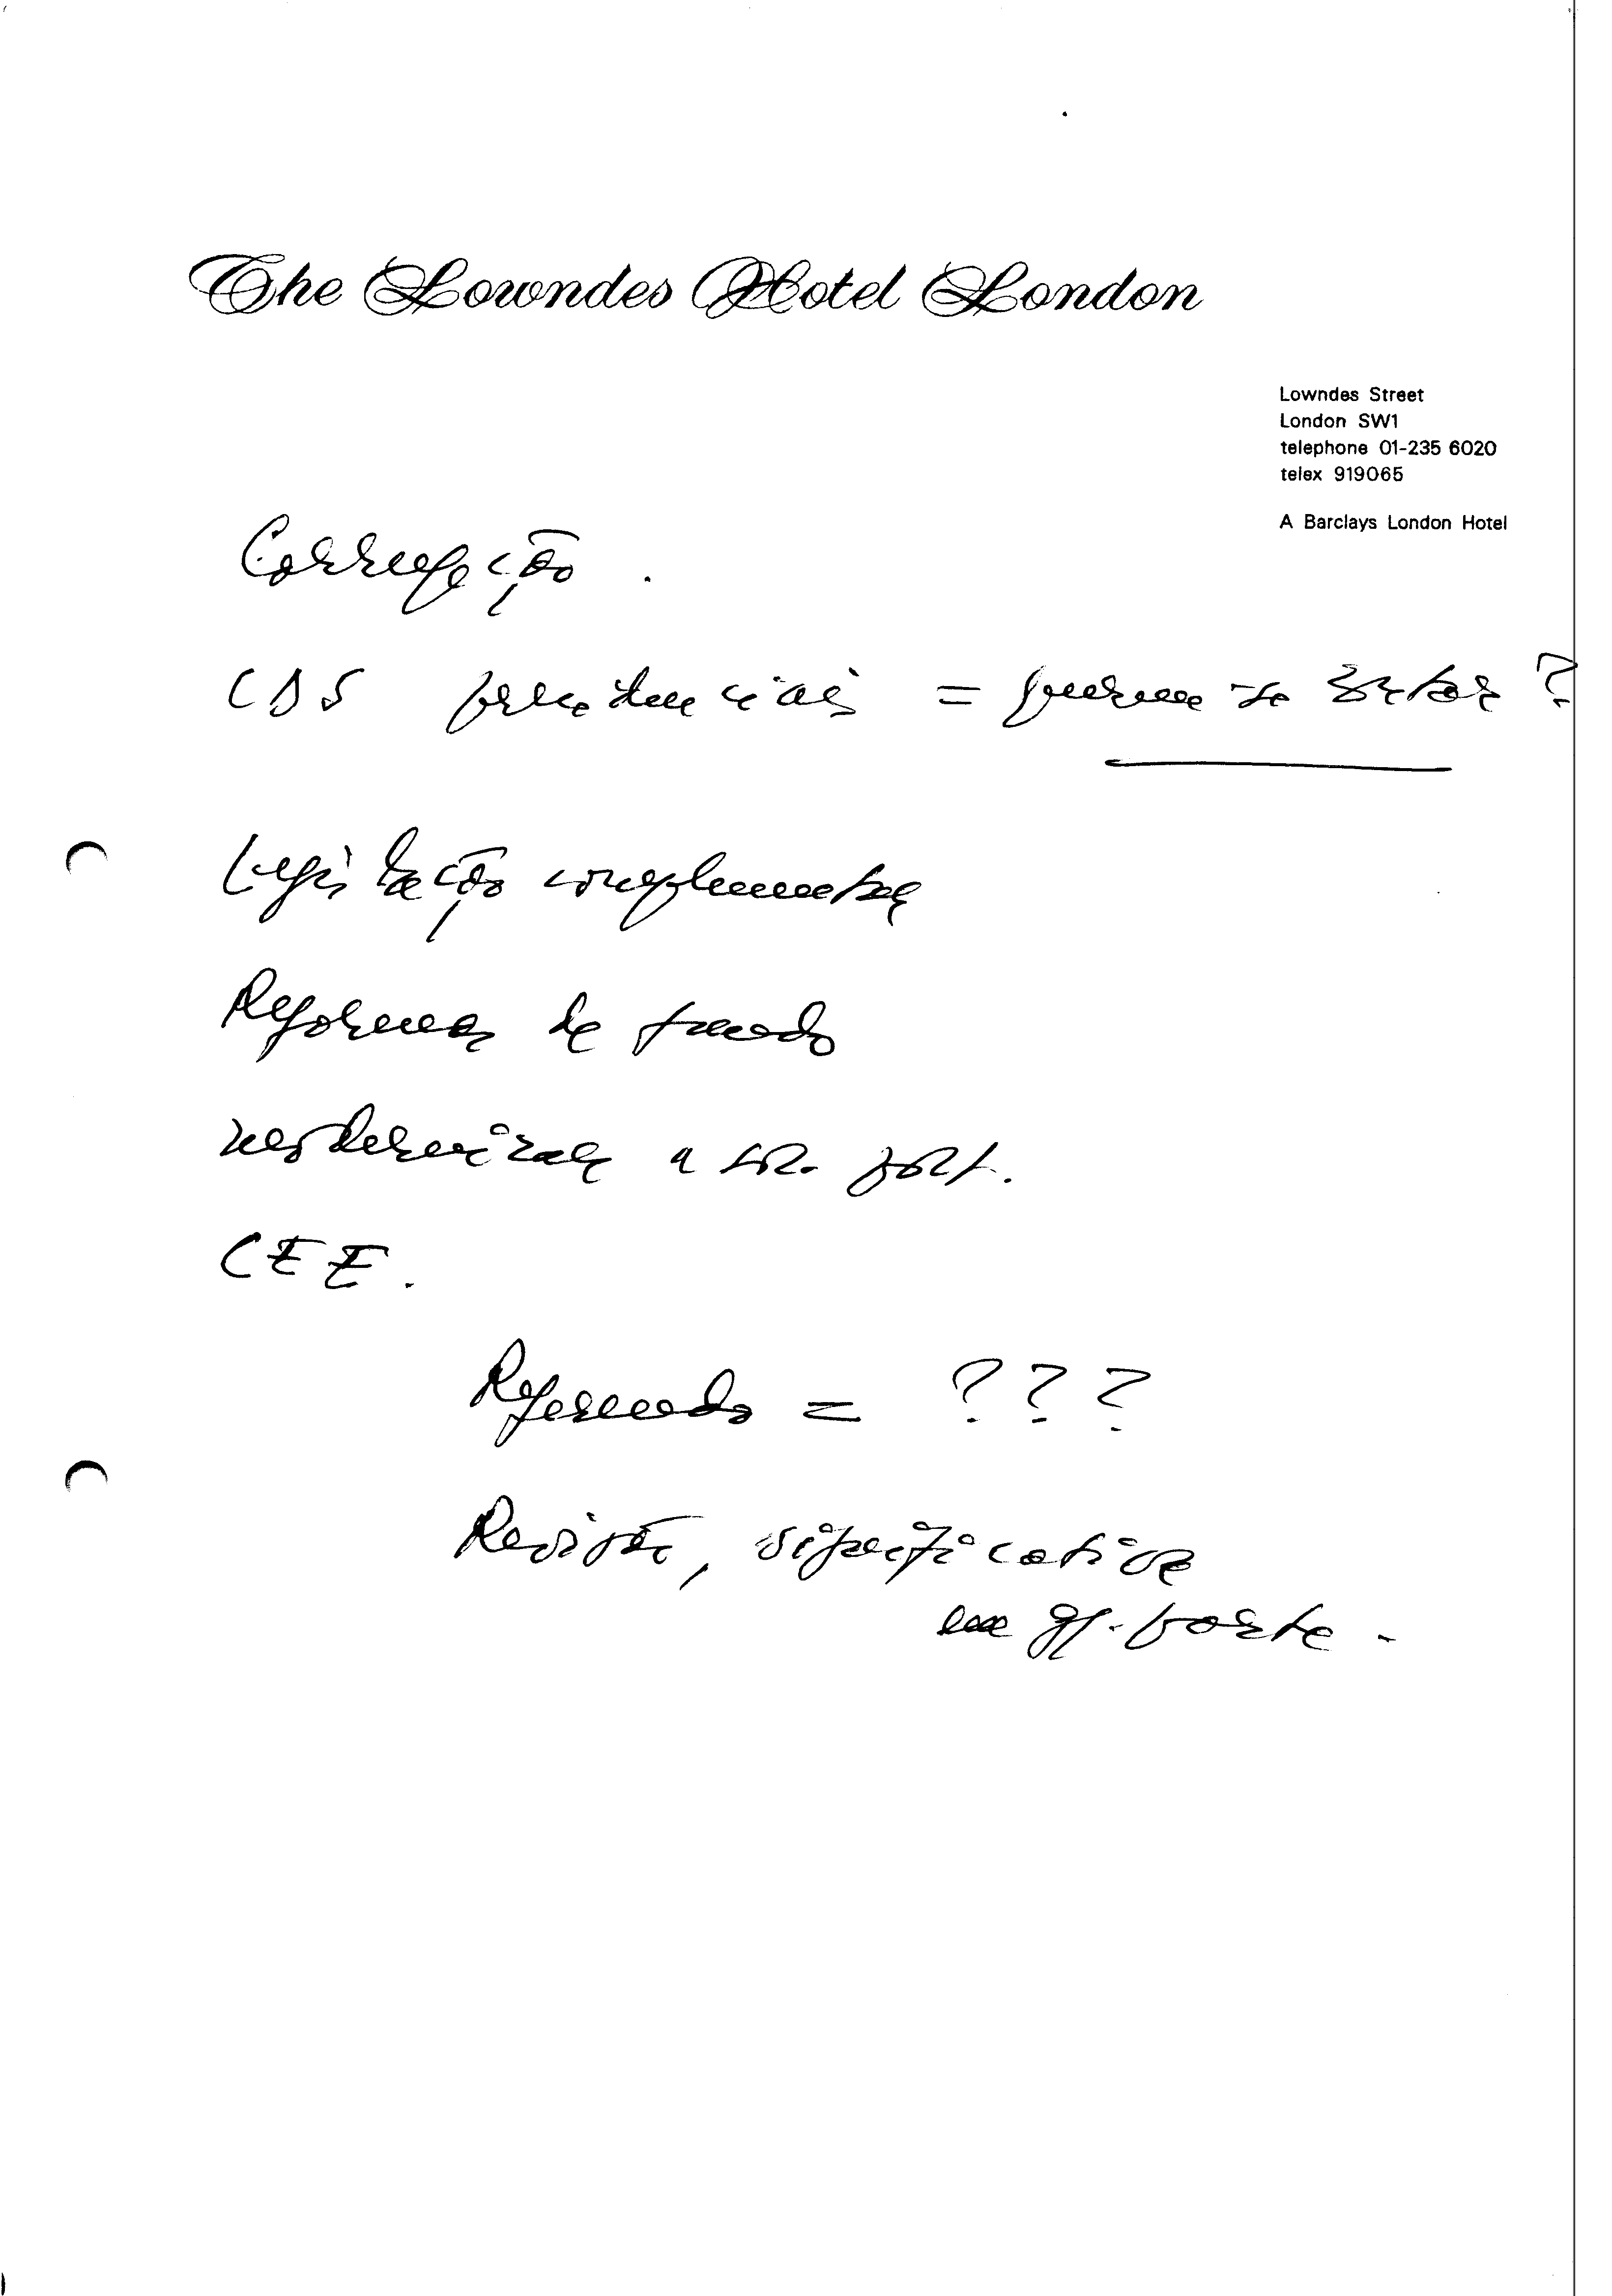 The Lowndes Hotel London
Lowndes Street
London SW1
telephone 01-235 6020
telex 919065
A Barclays London Hotel
Corrupção .
CDS presidenciais = ?
Legislação complementar
Reformas de fundo
modernizar a soc. port.
CEE.
Referendo = ? ? ?
Revisão, significativa
em gr. parte .